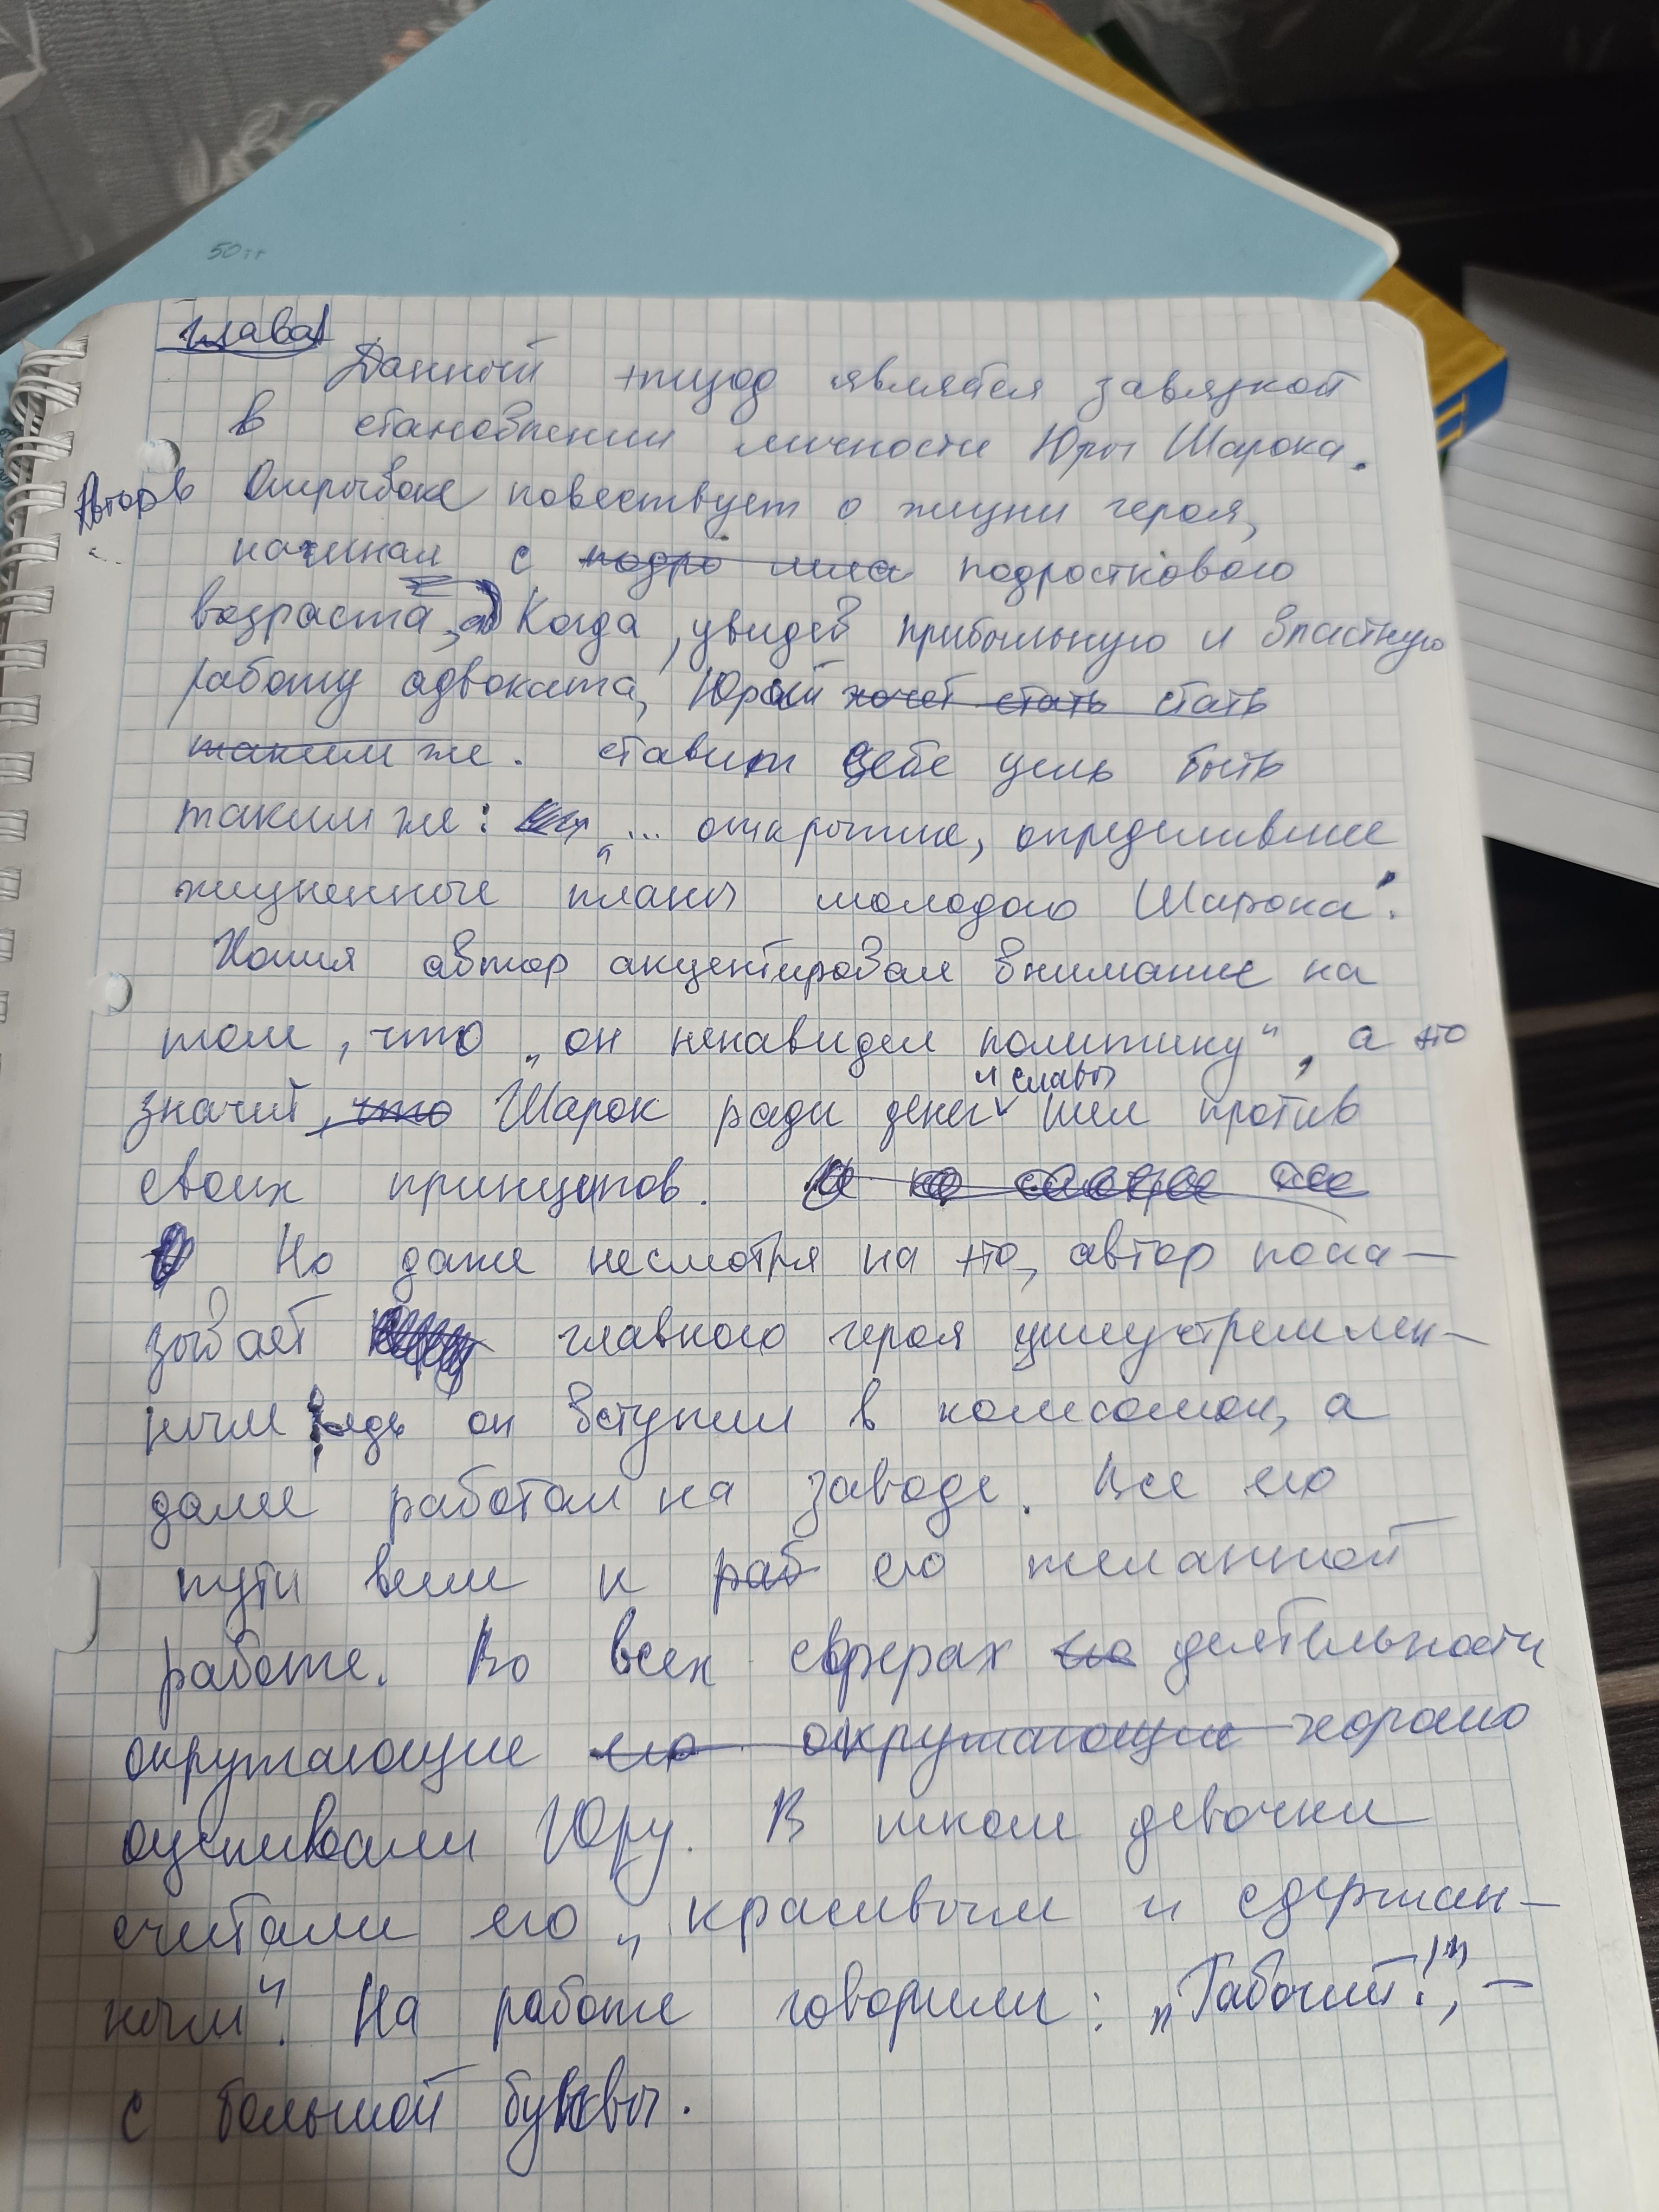 50тг
глава
Данный эпизод является завязкой
в становлении личности Юры Шарока.
Автор в отрывке повествует о жизни героя,
начиная с подро подросткового
возраста, Когда, увидев прибыльную и властную
работу адвоката, Юрий хочет стать стать
таким же. ставит себе цель быть
таким же: „... открытие, определившие
жизненные планы молодого Шарока".
Хотя автор акцентировал внимание на
том, что „он ненавидел политику", а это
значит, что Шарок ради денег и славы шел против
своих принципов.
Но даже несмотря на это, автор пока-
зывает главного героя целеустремлен-
ным ведь он вступил в комсомол, а
далее работал на заводе. Все его
пути вели к раб его желанной
работе. Во всех сферах его деятельности
окружающие его окружающие хорошо
оценивали Юру. В школе девочки
считали его „красивым и сдержан-
ным". На работе говорили: „Рабочий!", -
с большой буквы.